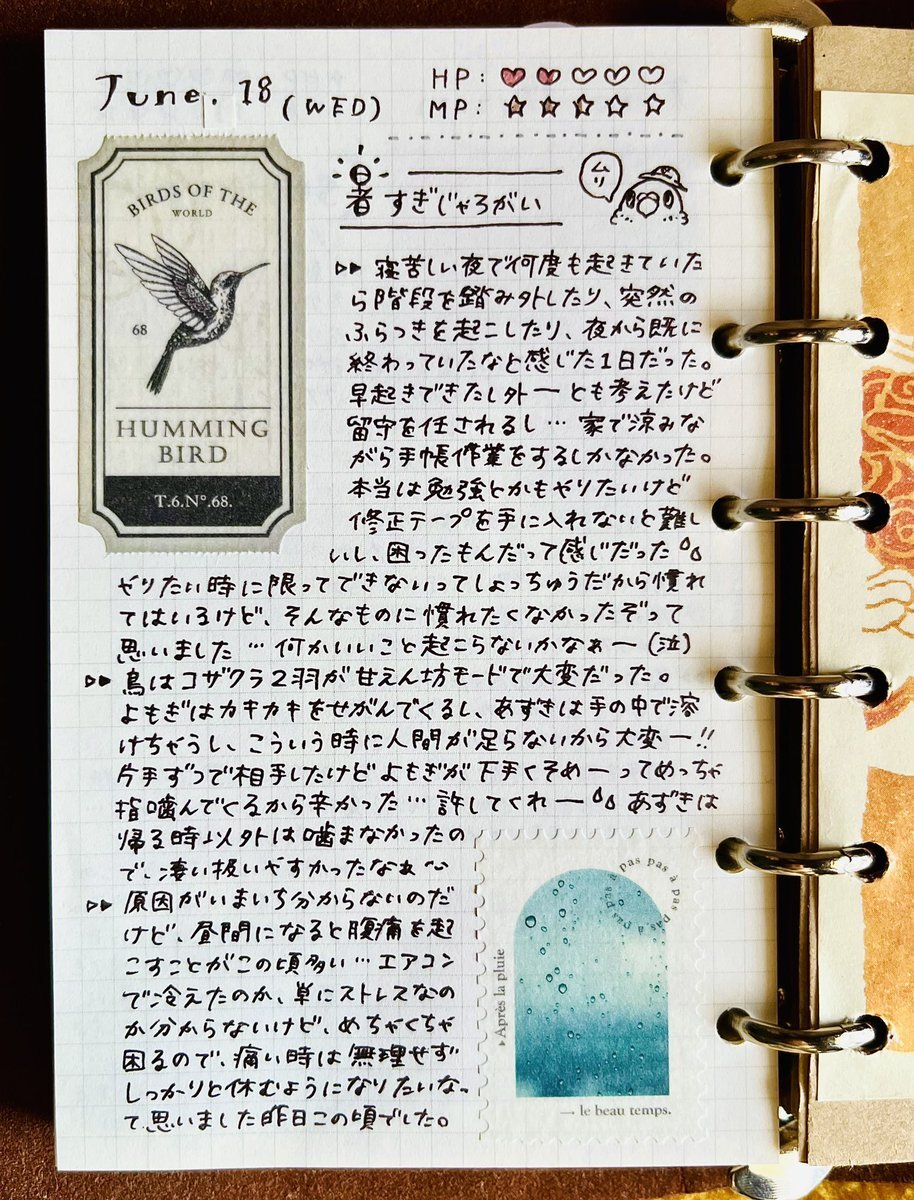 June. 18 (WED)
HP: ♥♥♡♡♡
MP: ☆☆☆☆☆
暑すぎじゃろがい
ムリ
BIRDS OF THE
WORLD
68
HUMMING
BIRD
T.6.N°.68.
▷▶ 寝苦しい夜で何度も起きていた
ら階段を踏み外したり、突然の
ふらつきを起こしたり、夜から既に
終わっていたなと感じた1日だった。
早起きできたし外ーとも考えたけど
留守を任されるし… 家で涼みな
がら手帳作業をするしかなかった。
本当は勉強とかもやりたいけど
修正テープを手に入れないと難し
いし、困ったもんだって感じだった
やりたい時に限ってできないってしょっちゅうだから慣れ
てはいるけど、そんなものに慣れたくなかったぞって
思いました … 何かいいこと起こらないかなぁー (泣)
▷▶ 鳥はコザクラ2羽が甘えん坊モードで大変だった。
よもぎはカキカキをせがんでくるし、あずきは手の中で溶
けちゃうし、こういう時に人間が足らないから大変ー!!
片手ずつで相手したけどよもぎが下手くそめーってめっちゃ
指噛んでくるから辛かった… 許してくれー あずきは
帰る時以外は噛まなかったの
で、凄い扱いやすかったなぁ
▷▶ 原因がいまいち分からないのだ
けど、昼間になると腹痛を起
こすことがこの頃多い… エアコン
で冷えたのか、単にストレスなの
か分からないけど、めちゃくちゃ
困るので、痛い時は無理せず
しっかりと休むようになりたいなっ
て思いました昨日この頃でした。
pas à pas pas à pas pas à pas pas à pas
▸Après la pluie
— le beau temps.